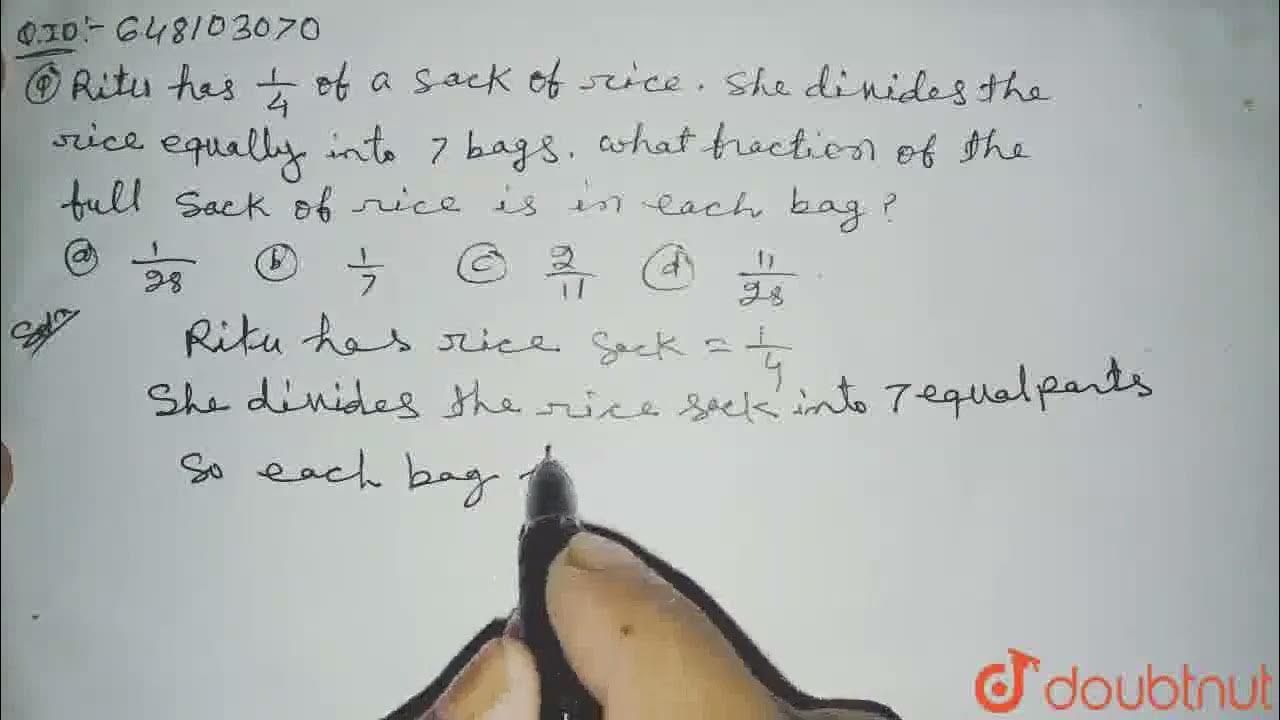 Q.ID:- 648103070
Q Ritu has 1/4 of a sack of rice. She divides the
rice equally into 7 bags. what fraction of the
full sack of rice is in each bag?
a 1/28 b 1/7 c 2/11 d 11/28
Soln
Ritu has rice sack = 1/4
She divides the rice sack into 7 equal parts
So each bag
doubtnut